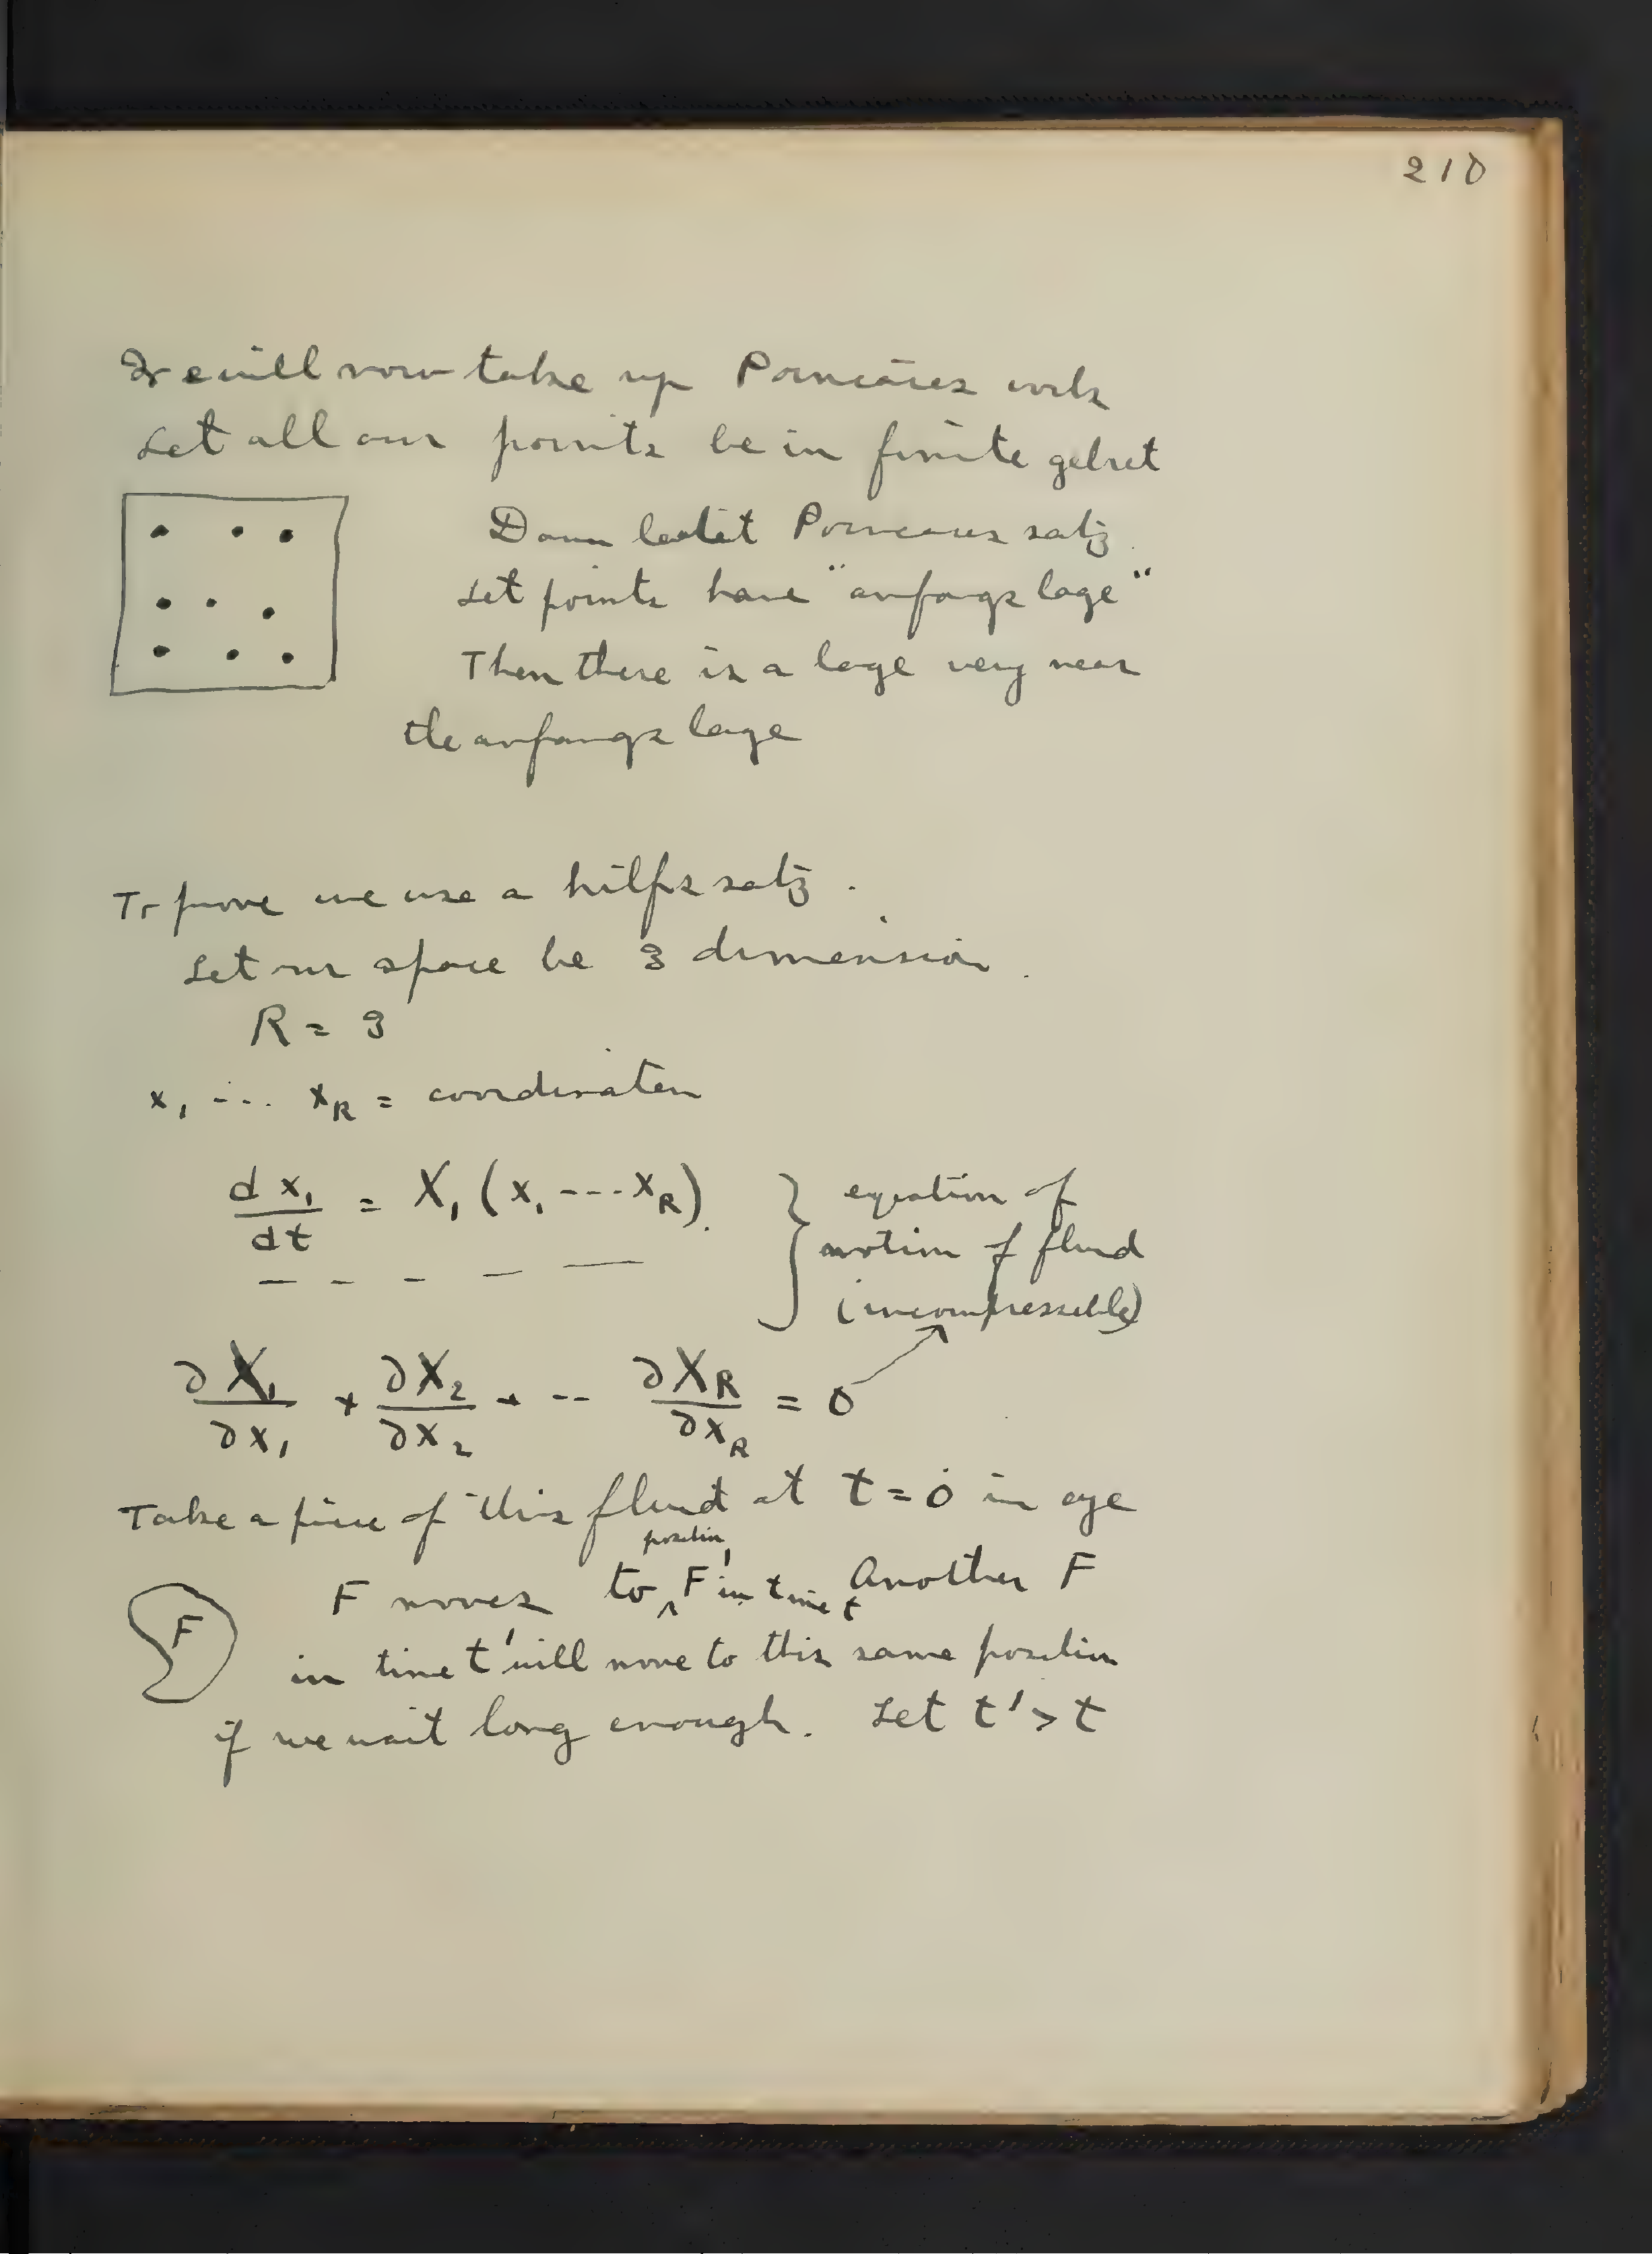 210
We will now take up Poincares work
Let all our points be in finite gebiet
Dann lautet Poincares satz
Let points have "anfangs lage"
Then there is a lage very near
the anfangs lage
To prove we use a hilfs satz.
Let our space be 3 dimension.
R = 3
x₁ ... x_R = coordinaten
dx₁/dt = X₁(x₁ --- x_R).
equation of
motion of fluid
(incompressible)
∂X₁/∂x₁ + ∂X₂/∂x₂ + -- ∂X_R/∂x_R = 0
Take a piece of this fluid at t = 0 in eye
position
F moves to F' in time t Another F
F
in time t' will move to this same position
if we wait long enough. Let t' > t